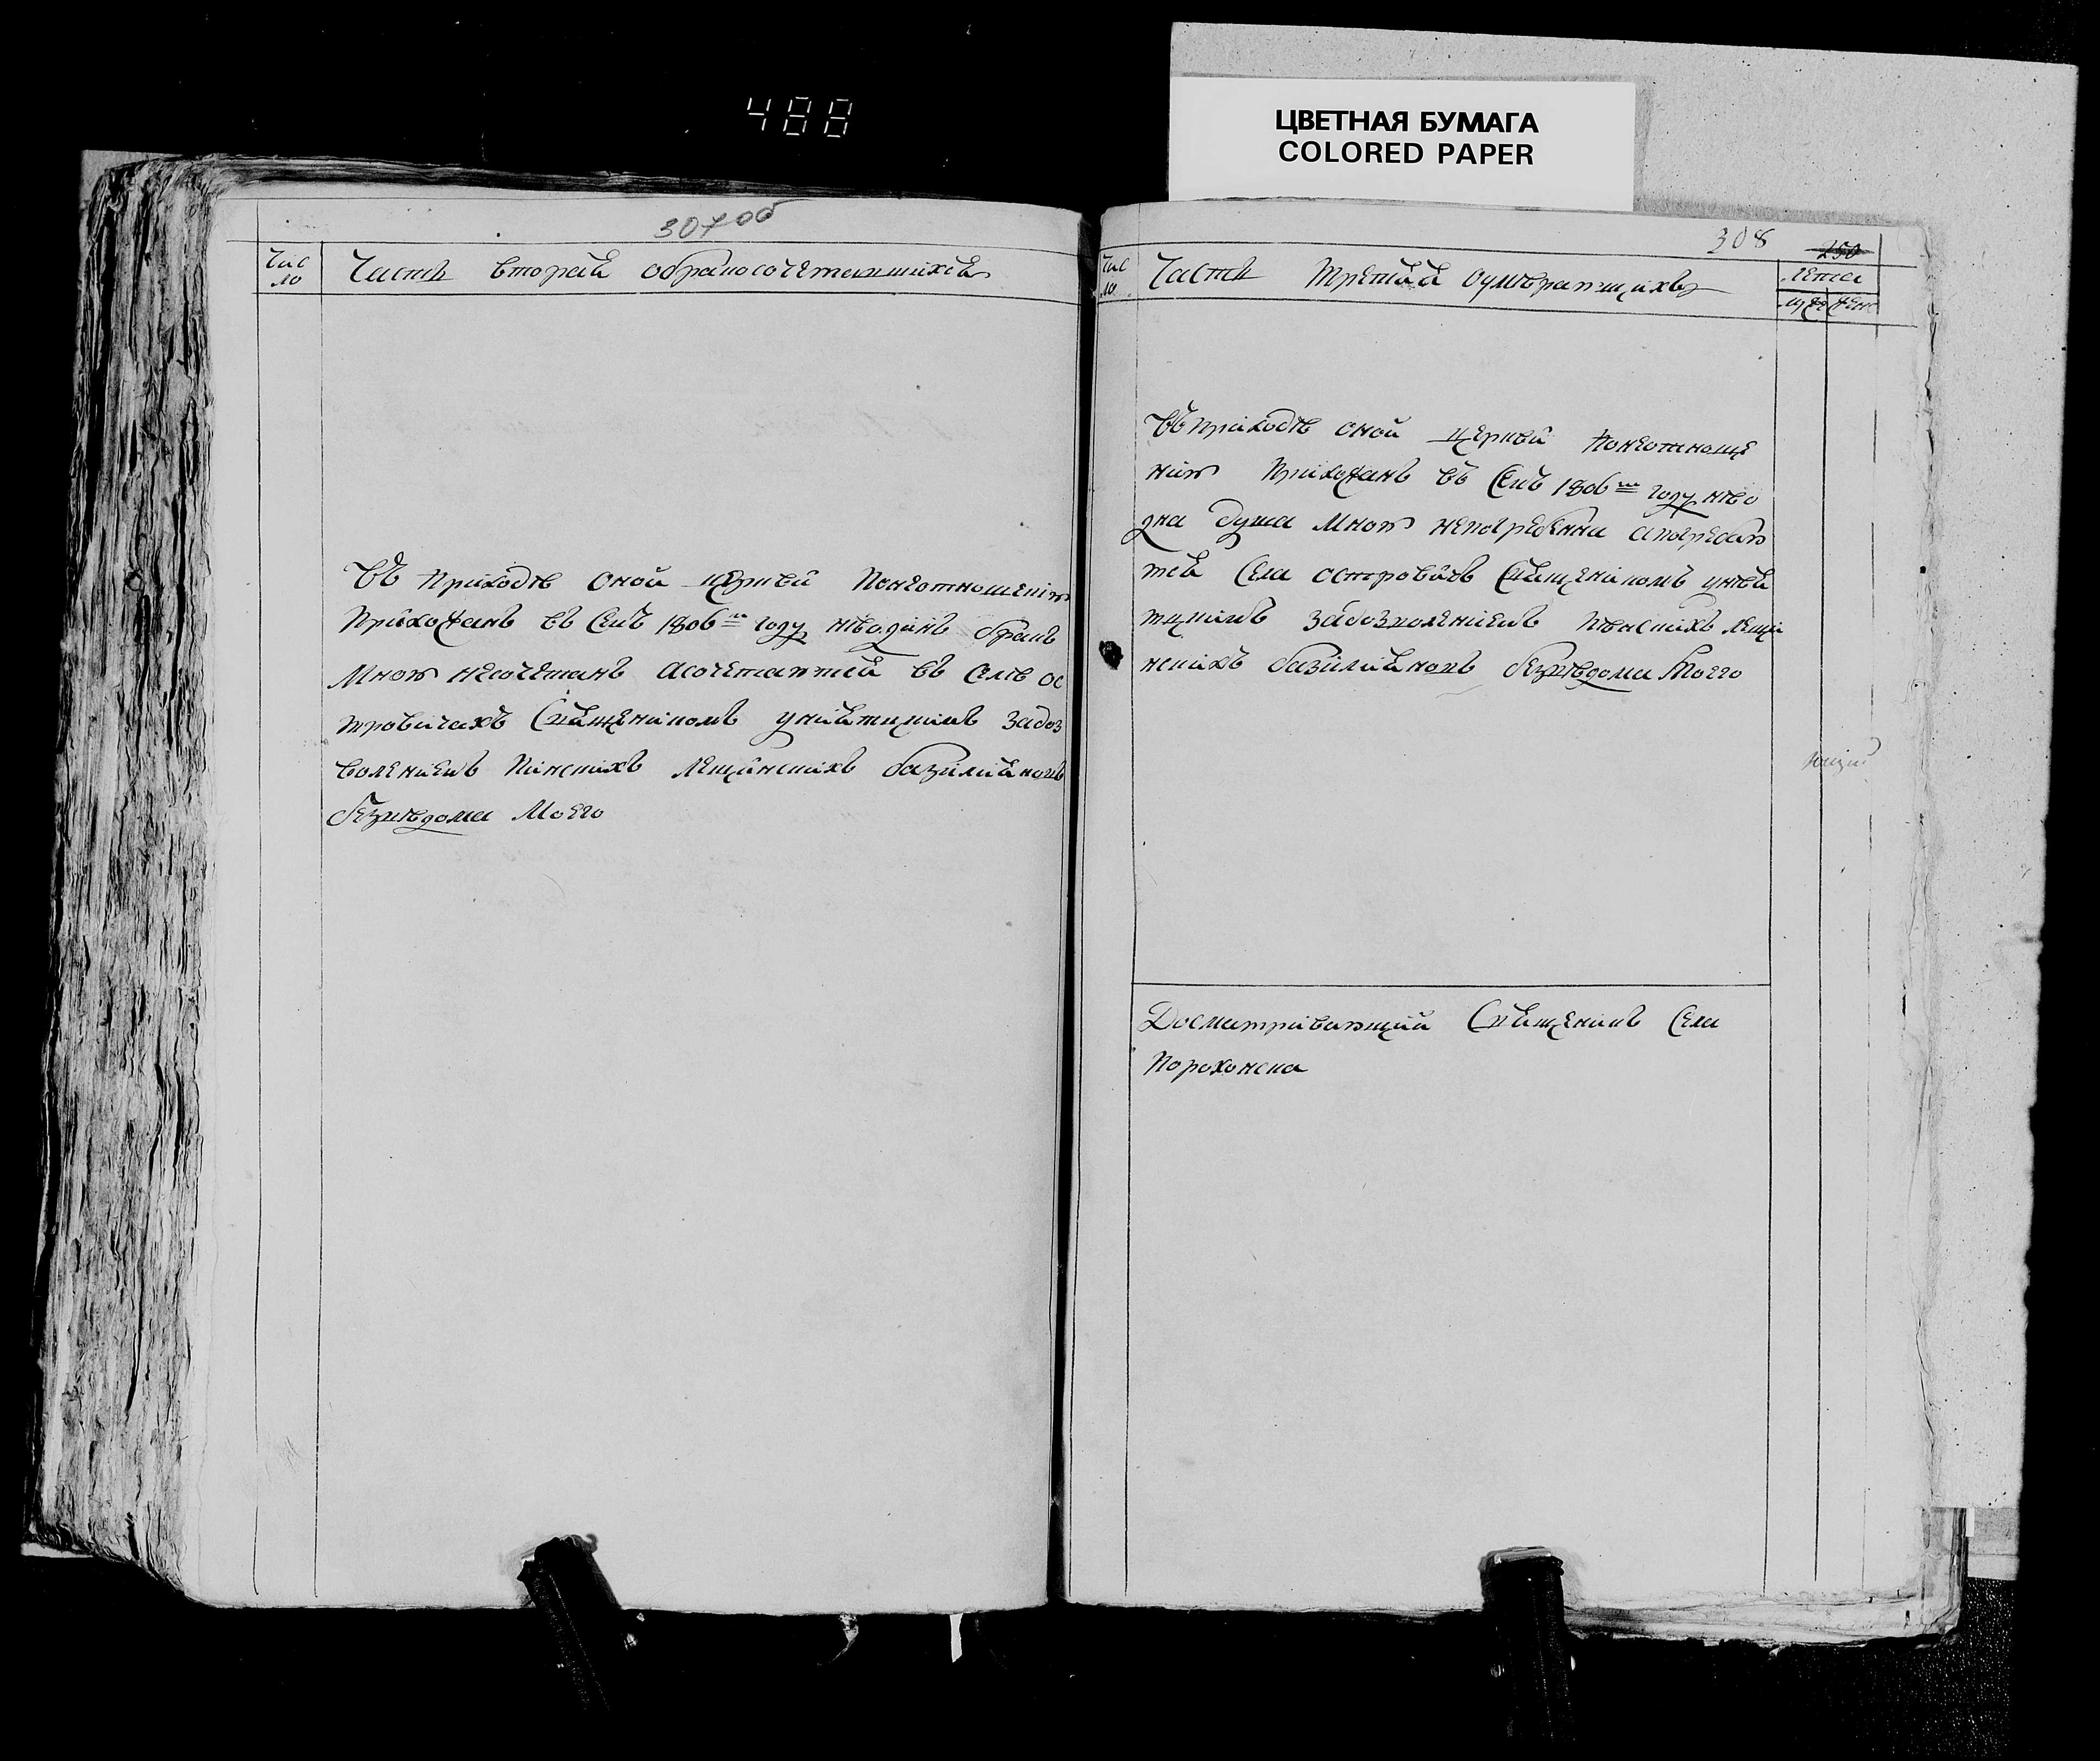 488
ЦВЕТНАЯ БУМАГА
COLORED PAPER
307 об
Чис
ло
Части Второй обракосочетавшихся
Въ Приходѣ оной церкви Понеотношенію
Приходанъ въ семъ 1806 м году нѣодинъ бракъ
Мною несочетанъ асочетаютсй въ Селѣ ос
тровичахъ Священикомъ унѣятцкимъ задоз
воленіемъ Пинскихъ Лещинскихъ базиліяновъ
безвѣдома Моего
308
250
Чис
ло
Части Третьей оумѣрающихъ
лѣтса
муже жене
Въ приходѣ оной церкви Понеотноще
нию Прихожанъ въ Семъ 1806 м году нѣо
дна душа Мною непогребенна апогребаю
тсй Села островичъ Священикомъ унѣя
тцкимъ задозволениемъ Пѣнскихъ Лещи
нскихъ базилиановъ безвѣдома Моего
Досматривающий Священикъ Села
Порохонска